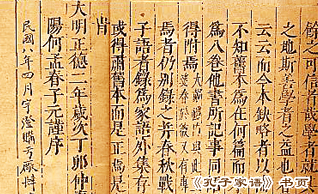 餘之可信者哉學者就
之地斯善學者之益也
云云而今本缺略者以
不知舊本為在何篇而
得附焉
為八卷他書所記事同
焉者仍別錄之并春秋戰
子語者錄為家語外集存
或得肅舊本而是正焉是
肯
大明正德二年歲次丁卯仲
陽何孟春子元謹序
民國八年四月
《孔子家语》书页